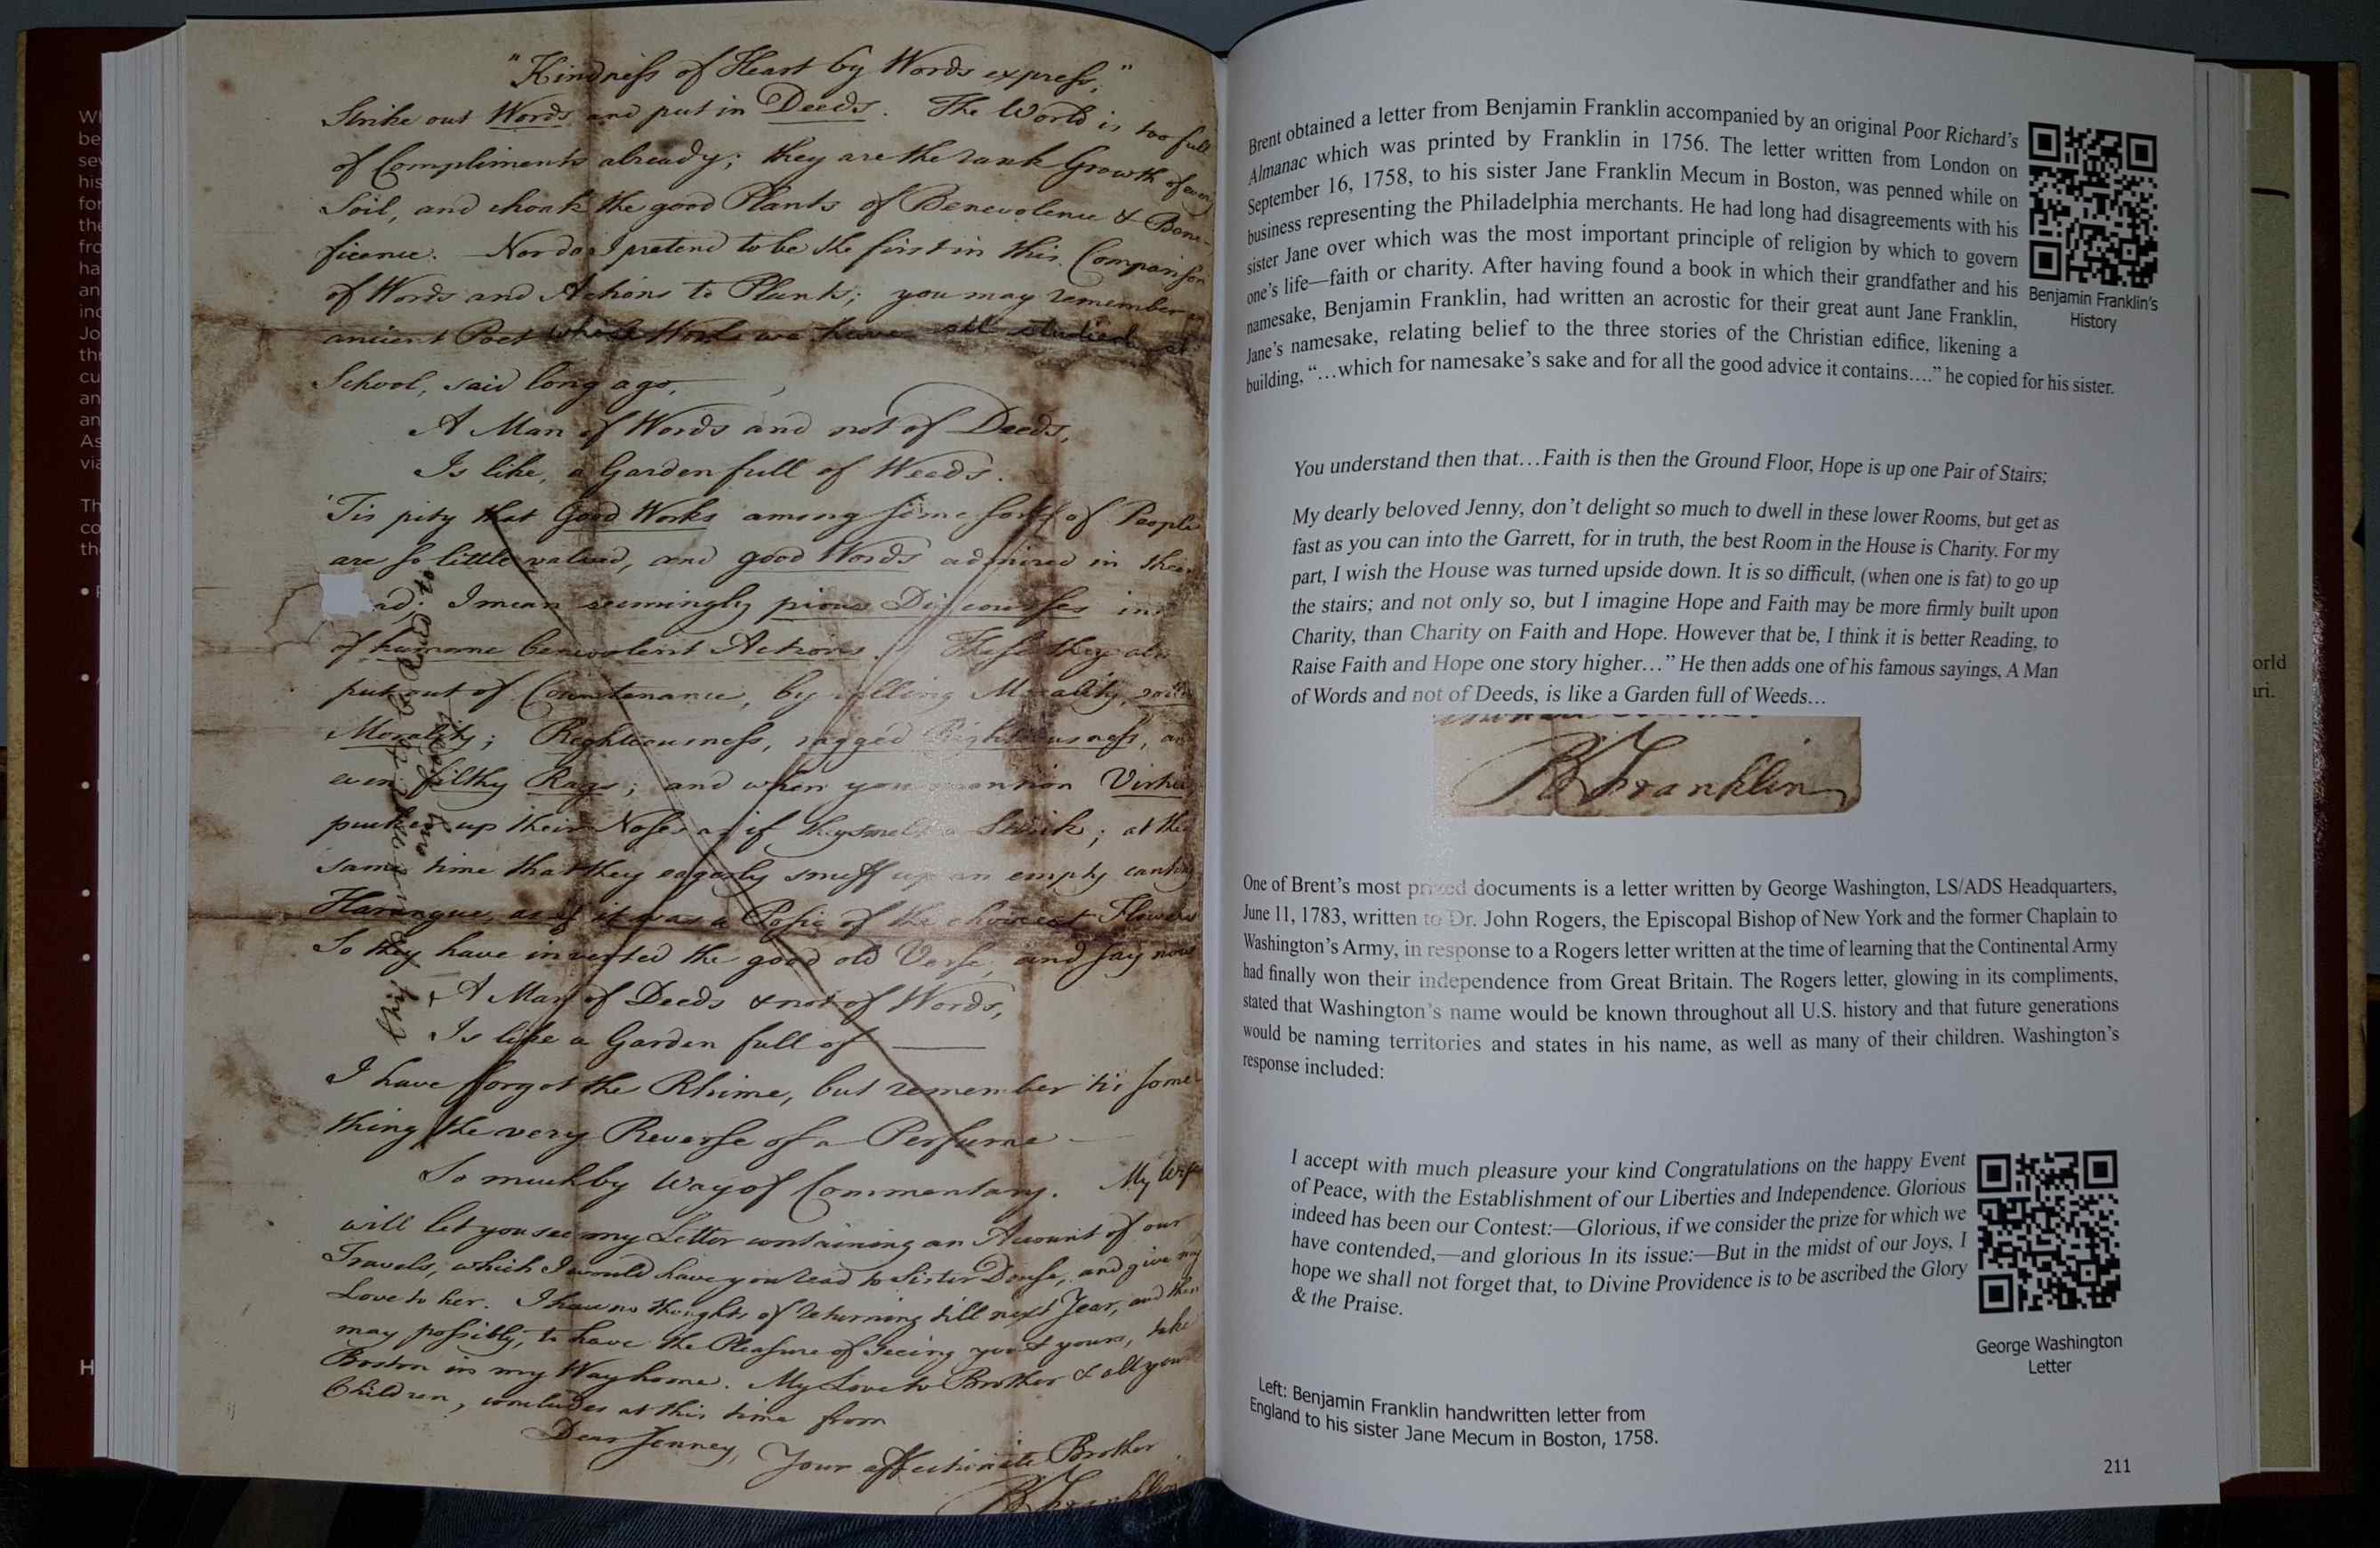 "Kindness of Heart by Words express,"
Strike out Words and put in Deeds. The World is too full
of Compliments already; they are the rank Growth of every
Soil, and choak the good Plants of Benevolence & Bene-
ficence. Nor do I pretend to be the first in this Comparison
of Words and Actions to Plants; you may remember an
ancient Poet whose Works we have all studied at
School, said long ago,
A Man of Words and not of Deeds,
Is like a Garden full of Weeds.
'Tis pity that Good Works among some sorts of People
are so little valued, and good Words admired in their
ad; I mean seemingly pious Discourses in
of humane benevolent Actions. These they
put out of Countenance, by calling Morality, rotten
Morality; Righteousness, ragged Righteousness, and
even filthy Rags; and when you mention Virtue
pucker up their Noses as if they smelt a Stink; at the
same time that they eagerly snuff up an empty canting
Harangue, as if it was a Posie of the choicest Flowers
So they have inverted the good old Verse, and say now
A Man of Deeds & not of Words,
Is like a Garden full of ———
I have forgot the Rhime, but remember 'tis some-
thing the very Reverse of a Perfume —
So much by Way of Commentary. My Wife
will let you see my Letter containing an Account of our
Travels, which I would have you read to Sister Douse, and give my
Love to her. I have no thoughts of returning till next Year, and then
may possibly, to have the Pleasure of seeing you & yours, take
Boston in my Way home. My Love to Brother & all your
Children, concludes at this time from
Dear Jenney, Your affectionate Brother
B Franklin
Brent obtained a letter from Benjamin Franklin accompanied by an original Poor Richard's
Almanac which was printed by Franklin in 1756. The letter written from London on
September 16, 1758, to his sister Jane Franklin Mecum in Boston, was penned while on
business representing the Philadelphia merchants. He had long had disagreements with his
sister Jane over which was the most important principle of religion by which to govern
one's life—faith or charity. After having found a book in which their grandfather and his
namesake, Benjamin Franklin, had written an acrostic for their great aunt Jane Franklin,
Jane's namesake, relating belief to the three stories of the Christian edifice, likening a
building, “…which for namesake's sake and for all the good advice it contains….” he copied for his sister.
Benjamin Franklin's
History
You understand then that…Faith is then the Ground Floor, Hope is up one Pair of Stairs;
My dearly beloved Jenny, don't delight so much to dwell in these lower Rooms, but get as
fast as you can into the Garrett, for in truth, the best Room in the House is Charity. For my
part, I wish the House was turned upside down. It is so difficult, (when one is fat) to go up
the stairs; and not only so, but I imagine Hope and Faith may be more firmly built upon
Charity, than Charity on Faith and Hope. However that be, I think it is better Reading, to
Raise Faith and Hope one story higher…” He then adds one of his famous sayings, A Man
of Words and not of Deeds, is like a Garden full of Weeds…
B Franklin
One of Brent's most prized documents is a letter written by George Washington, LS/ADS Headquarters,
June 11, 1783, written to Dr. John Rogers, the Episcopal Bishop of New York and the former Chaplain to
Washington's Army, in response to a Rogers letter written at the time of learning that the Continental Army
had finally won their independence from Great Britain. The Rogers letter, glowing in its compliments,
stated that Washington's name would be known throughout all U.S. history and that future generations
would be naming territories and states in his name, as well as many of their children. Washington's
response included:
I accept with much pleasure your kind Congratulations on the happy Event
of Peace, with the Establishment of our Liberties and Independence. Glorious
indeed has been our Contest:—Glorious, if we consider the prize for which we
have contended,—and glorious In its issue:—But in the midst of our Joys, I
hope we shall not forget that, to Divine Providence is to be ascribed the Glory
& the Praise.
George Washington
Letter
Left: Benjamin Franklin handwritten letter from
England to his sister Jane Mecum in Boston, 1758.
211